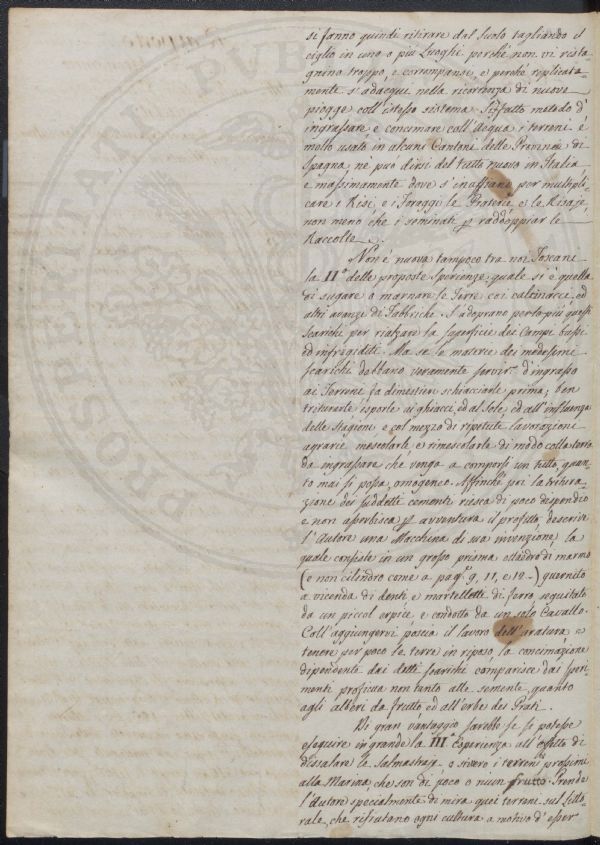 si fanno quindi ritirare dal suolo tagliando il
ciglio in uno o più Luoghi perché non vi rista-
gnino troppo, e corrompansi, e perché replicata-
mente s'adacqui nella ricorrenza di nuove
piogge coll'istesso sistema. Siffatto metodo d'
ingrassare e concimare coll'Acqua i terreni è
molto usato in alcuni Cantoni delle Provincie di
Spagna, nè può dirsi del tutto nuovo in Italia
e massimamente dove s'inaffiano per multipli-
care i Risi e i Foraggi le Praterie e le Risaje,
non meno che i seminati p raddoppiar le
Raccolte.
Non è nuova tampoco tra noi Toscani
la II.a delle proposte Sperienze, quale si è quella
di sugare o marnare le Terre coi calcinacci, ed
altri avanzi di Fabbriche. S'adoprano per lo più questi
scarichi per rialzare la superficie dei Campi bassi
ed infrigiditi. Ma se le materie dei medesimi
scarichi debbano veramente servir d'ingrasso
ai Terreni fa dimestieri schiacciarle prima, ben
triturarle esporle ai ghiacci, ed al Sole, ed all'influenza
delle Stagioni e col mezzo di ripetute lavorazioni
agrarie mescolarle, e rimescolarle di modo colla terra
da ingrassare che venga a comporsi un tutto, quan-
to mai si possa, omogeneo. Affinché poi la tritura-
zione dei suddetti cementi riesca di poco dispendio
e non assorbisca p avventura il profitto, descrive
l'Autore una Macchina di sua invenzione, la
quale consiste in un grosso prisma ottaedro di marmo
(e non cilindro come a pag. 9, 11, e 12.) guernito
a vicenda di denti e martelletti di ferro seguitato
da un piccol erpice, e condotto da un solo Cavallo.
Coll'aggiungervi poscia il lavoro dell'aratura e
tenere per poco le terre in riposo, la concimazione
dipendente dai detti scarichi comparisce dai speri-
menti proficua non tanto alle semente, quanto
agli alberi da frutto, ed all'erbe dei Prati.
Di gran vantaggio sarebbe se si potesse
eseguire in grande la III.a Esperienza all'effetto di
dissalare le Salmastraje o sivvero i terreni prossimi
alla Marina, che son di poco o niun frutto. Prende
l'Autore specialmente di mira quei terreni sul litto-
rale, che rifiutano ogni cultura a motivo d'esser